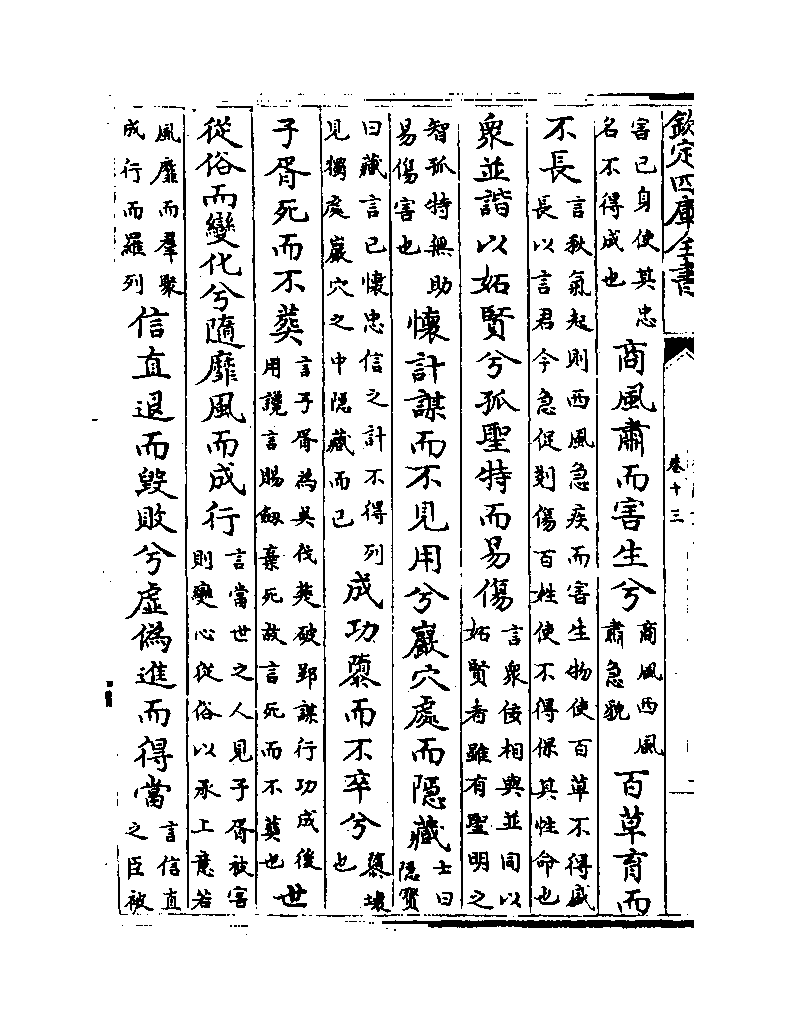 欽定四庫全書
卷十三
害己身使其忠
名不得成也
商風肅而害生兮
商風西風
肅急貌
百草育而
不長
言秋氣起則西風急疾而害生物使百草不得盛
長以言君令急促剗傷百姓使不得保其性命也
衆並諧以妬賢兮孤聖特而易傷
言衆佞相與並同以
妬賢者雖有聖明之
智孤特無助
易傷害也
懷計謀而不見用兮巖穴處而隱藏
士曰
隱寳
曰藏言己懷忠信之計不得列
見獨處巖穴之中隱藏而已
成功隳而不卒兮
隳壞
也
子胥死而不葬
言子胥為吳伐楚破郢謀行功成後
用讒言賜劔棄死故言死而不葬也
世
從俗而變化兮隨靡風而成行
言當世之人見子胥被害
則變心從俗以承上意若
風靡而羣聚
成行而羅列
信直退而毀敗兮虛偽進而得當
言信直
之臣被